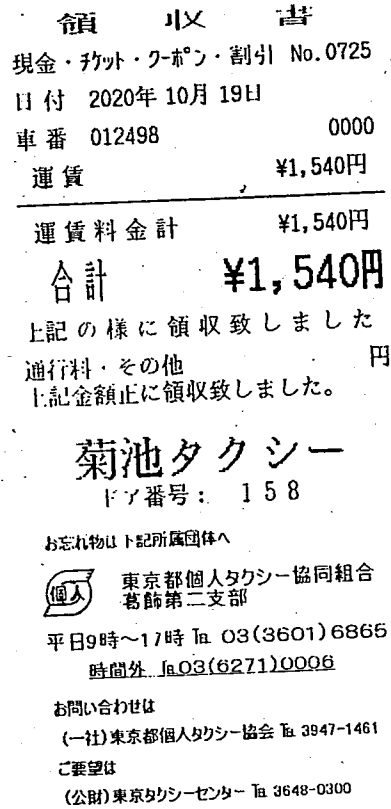 領収書
現金・チケット・クーポン・割引 No.0725
日付 2020年10月19日
車番 012498 0000
運賃 ¥1,540円
運賃料金計 ¥1,540円
合計 ¥1,540円
上記の様に領収致しました
通行料・その他 円
上記金額正に領収致しました。
菊池タクシー
ドア番号: 158
お忘れ物は下記所属団体へ
個人
東京都個人タクシー協同組合
葛飾第二支部
平日9時〜17時 ℡ 03(3601)6865
時間外 ℡03(6271)0006
お問い合わせは
(一社)東京都個人タクシー協会 ℡ 3947-1461
ご要望は
(公財)東京タクシーセンター ℡ 3648-0300